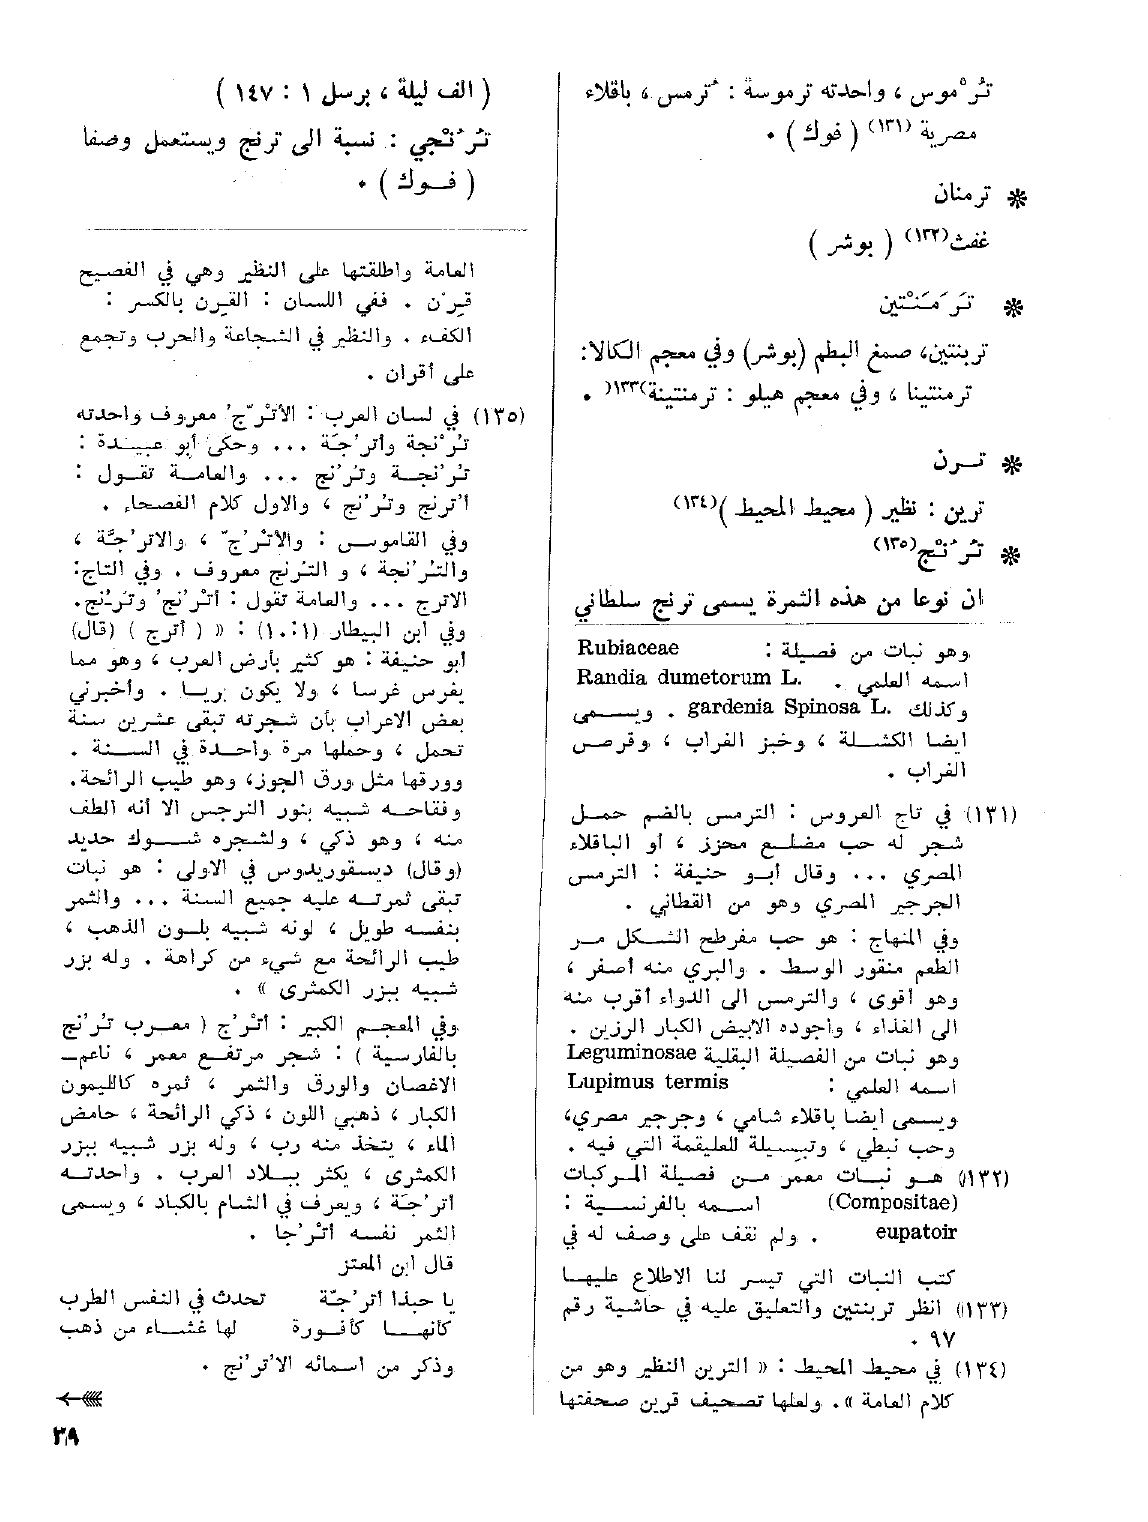 تُرْموس ، واحدته ترموسة : تُرمس ، باقلاء
مصرية (١٣١) ( فوك ) .
* ترمنان
غفث(١٣٢) ( بوشر )
* تَرَمَنْتين
تربنتين، صمغ البطم (بوشر) وفي معجم الكالا:
ترمنتينا ، وفي معجم هيلو : ترمنتينة(١٣٣) .
* تــرن
ترين : نظير ( محيط المحيط )(١٣٤)
* تُرُنْج(١٣٥)
ان نوعا من هذه الثمرة يسمى ترنج سلطاني
وهو نبات من فصيلة : Rubiaceae
اسمه العلمي . Randia dumetorum L.
وكذلك gardenia Spinosa L. . ويسمى
ايضا الكثلة ، وخبز الغراب ، وقرص
الغراب .
(١٣١) في تاج العروس : الترمس بالضم حمل
شجر له حب مضلع محزز ، أو الباقلاء
المصري ... وقال أبو حنيفة : الترمس
الجرجير المصري وهو من القطاني .
وفي المنهاج : هو حب مفرطح الشكل مر
الطعم منقور الوسط . والبري منه أصفر ،
وهو أقوى ، والترمس الى الدواء أقرب منه
الى الغذاء ، واجوده الابيض الكبار الرزين .
وهو نبات من الفصيلة البقلية Leguminosae
اسمه العلمي : Lupimus termis
ويسمى ايضا باقلاء شامي ، وجرجير مصري،
وحب نبطي ، وتبسيلة للعليقمة التي فيه .
(١٣٢) هو نبات معمر من فصيلة المركبات
(Compositae) اسمه بالفرنسية :
eupatoir . ولم نقف على وصف له في
كتب النبات التي تيسر لنا الاطلاع عليها
(١٣٣) انظر تربنتين والتعليق عليه في حاشية رقم
٩٧ .
(١٣٤) في محيط المحيط : « الترين النظير وهو من
كلام العامة » . ولعلها تصحيف قرين صحفتها
( الف ليلة ، برسل ١ : ١٤٧ )
تُرُنْجي : نسبة الى ترنج ويستعمل وصفا
( فــوك ) .
العامة واطلقتها على النظير وهي في الفصيح
قِرْن . ففي اللسان : القِرن بالكسر :
الكفء . والنظير في الشجاعة والحرب وتجمع
على أقران .
(١٣٥) في لسان العرب : الأترّج معروف واحدته
تُرُنجة وأترُجّة ... وحكى أبو عبيدة :
تُرُنجة وتُرُنج ... والعامة تقول :
أترنج وتُرُنج ، والاول كلام الفصحاء .
وفي القاموس : والأترُجّ ، والاترُجَّة ،
والتُرُنجة ، و التُرنج معروف . وفي التاج:
الاترج ... والعامة تقول : أترُنج وتُرُنج.
وفي ابن البيطار (١:١٠) : « ( أترج ) (قال)
أبو حنيفة : هو كثير بأرض العرب ، وهو مما
يغرس غرسا ، ولا يكون بريا . وأخبرني
بعض الاعراب بأن شجرته تبقى عشرين سنة
تحمل ، وحملها مرة واحدة في السنة .
وورقها مثل ورق الجوز، وهو طيب الرائحة.
وفقاحه شبيه بنور النرجس الا أنه الطف
منه ، وهو ذكي ، ولشجره شوك حديد
(وقال) ديسقوريدوس في الاولى : هو نبات
تبقى ثمرته عليه جميع السنة ... والثمر
بنفسه طويل ، لونه شبيه بلون الذهب ،
طيب الرائحة مع شيء من كراهة . وله بزر
شبيه ببزر الكمثرى » .
وفي المعجم الكبير : أترُج ( معرب تُرُنج
بالفارسية ) : شجر مرتفع معمر ، ناعم
الاغصان والورق والثمر ، ثمره كالليمون
الكبار ، ذهبي اللون ، ذكي الرائحة ، حامض
الماء ، يتخذ منه رب ، وله بزر شبيه ببزر
الكمثرى ، يكثر ببلاد العرب . واحدته
أترُجّة ، ويعرف في الشام بالكباد ، ويسمى
الثمر نفسه أترُجا .
قال ابن المعتز
يا حبذا أترُجّة تحدث في النفس الطرب
كأنها كافورة لها غشاء من ذهب
وذكر من اسمائه الأترُنج .
٣٩